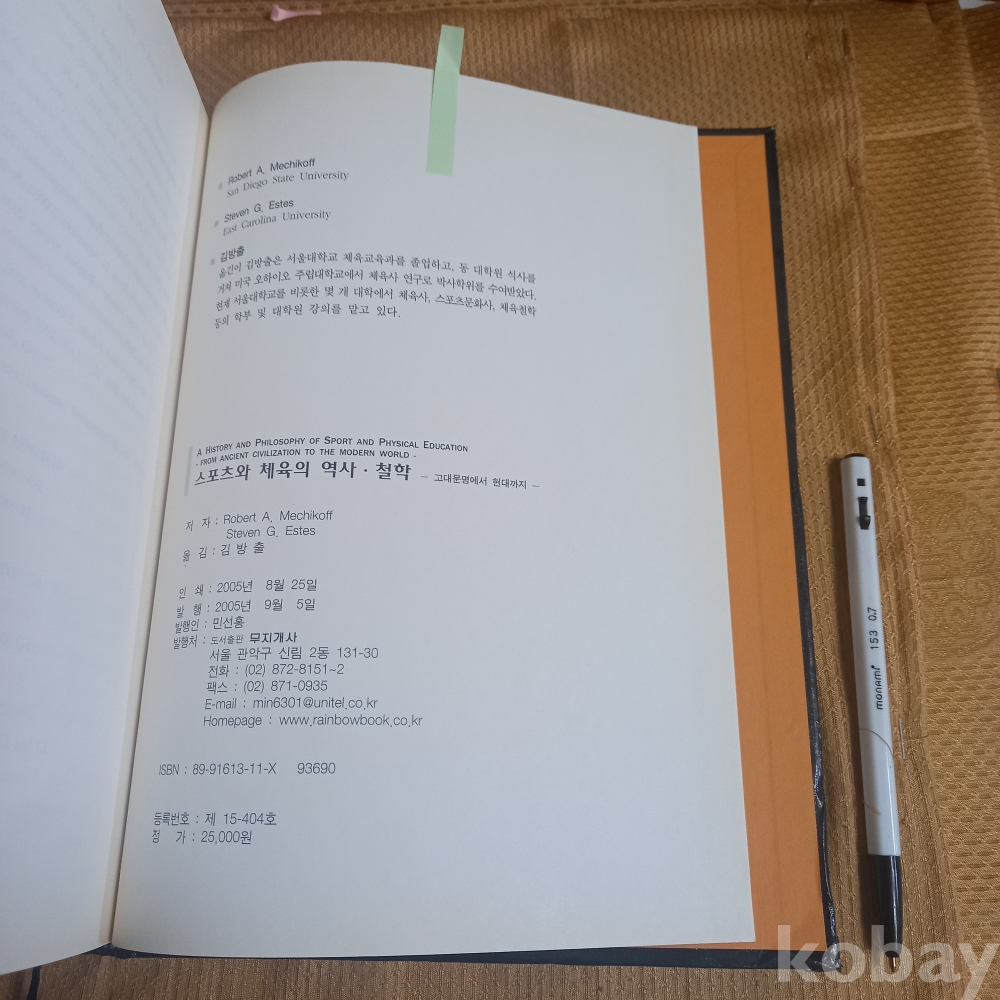 Robert A. Mechikoff
San Diego State University
Steven G. Estes
East Carolina University
김방출
옮긴이 김방출은 서울대학교 체육교육과를 졸업하고, 동 대학원 석사를
거쳐 미국 오하이오 주립대학교에서 체육사 연구로 박사학위를 수여받았다.
현재 서울대학교를 비롯한 몇 개 대학에서 체육사, 스포츠문화사, 체육철학
등의 학부 및 대학원 강의를 맡고 있다.
A HISTORY AND PHILOSOPHY OF SPORT AND PHYSICAL EDUCATION
- FROM ANCIENT CIVILIZATION TO THE MODERN WORLD -
스포츠와 체육의 역사 · 철학 - 고대문명에서 현대까지 -
저 자 : Robert A. Mechikoff
Steven G. Estes
옮 김 : 김 방 출
인 쇄 : 2005년 8월 25일
발 행 : 2005년 9월 5일
발행인 : 민선홍
발행처 : 도서출판 무지개사
서울 관악구 신림 2동 131-30
전화 : (02) 872-8151~2
팩스 : (02) 871-0935
E-mail : min6301@unitel.co.kr
Homepage : www.rainbowbook.co.kr
ISBN : 89-91613-11-X 93690
등록번호 : 제 15-404호
정 가 : 25,000원
monami 153 0.7
kobay